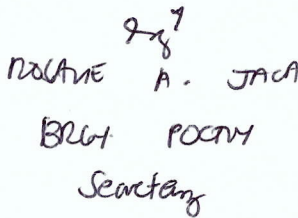 ROLANE A. JACA
BRGY POCTNY
Secretary